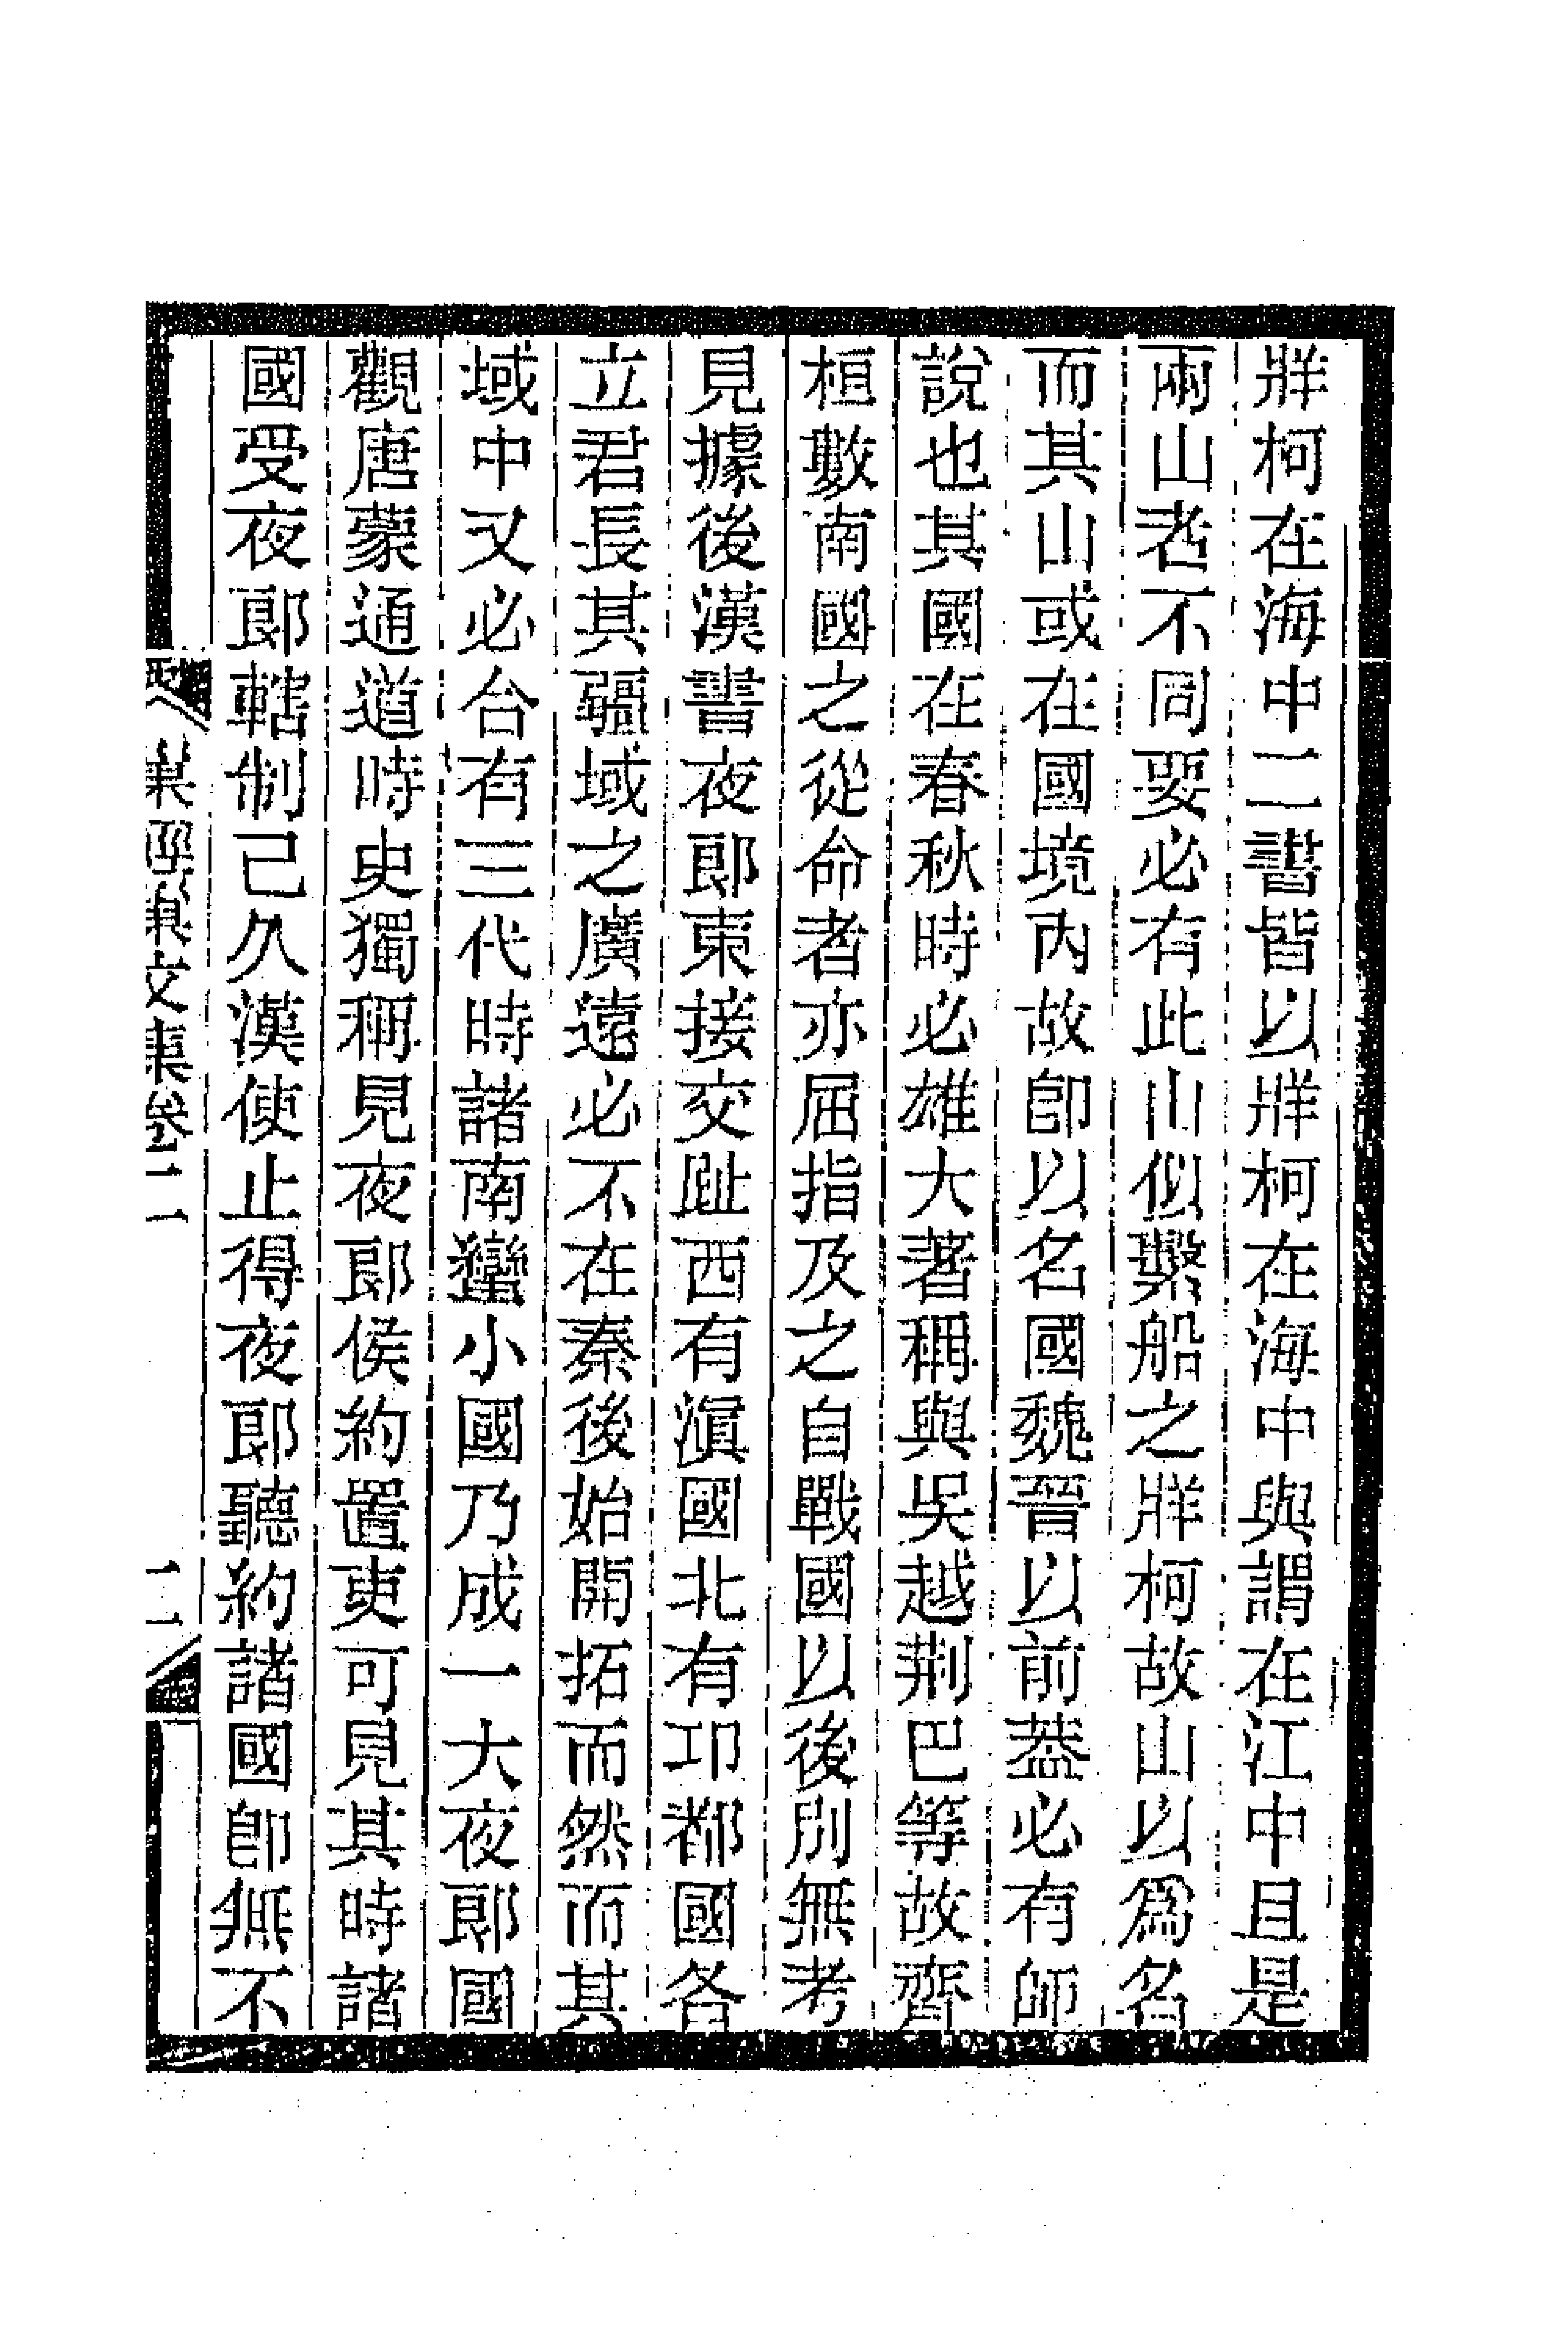 牂柯在海中二書皆以牂柯在海中與謂在江中且是
兩山者不同要必有此山似繫船之牂柯故山以爲名
而其山或在國境內故卽以名國魏晉以前葢必有師
說也其國在春秋時必雄大著稱與吳越荆巴等故齊
桓數南國之從命者亦屈指及之自戰國以後別無考
見據後漢書夜郞東接交趾西有滇國北有邛都國各
立君長其疆域之廣遠必不在秦後始開拓而然而其
域中又必合有三代時諸南蠻小國乃成一大夜郞國
觀唐蒙通道時史獨稱見夜郞侯約置吏可見其時諸
國受夜郞轄制已久漢使止得夜郞聽約諸國卽無不
巢經巢文集卷二
二